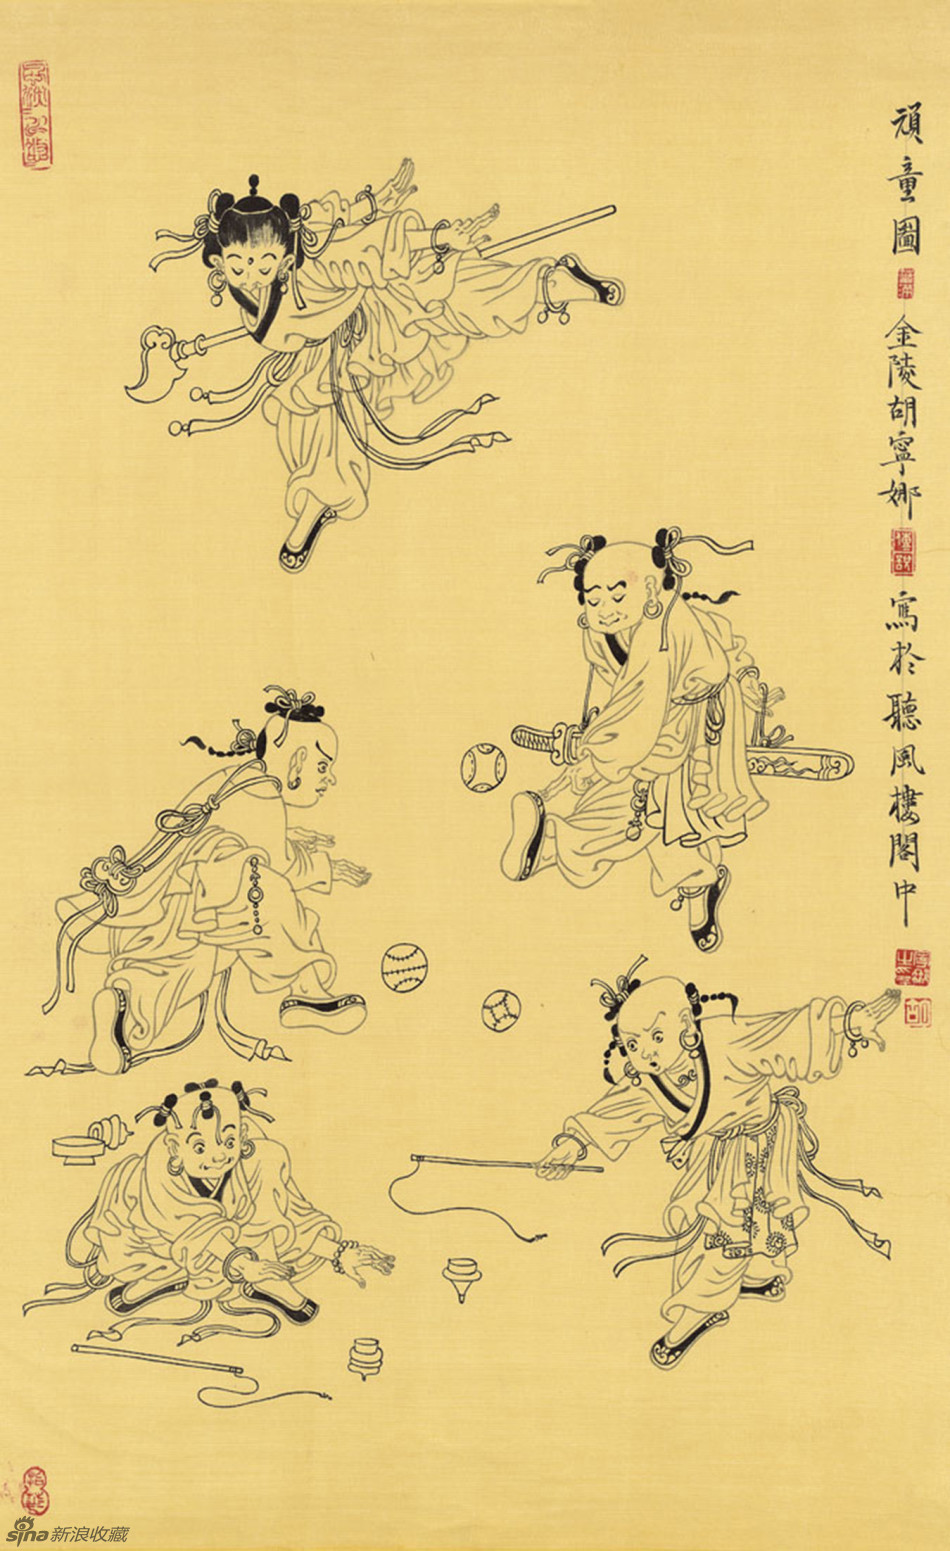 頑童圖
金陵胡寧娜
寫於聽風樓閣中
sina新浪收藏